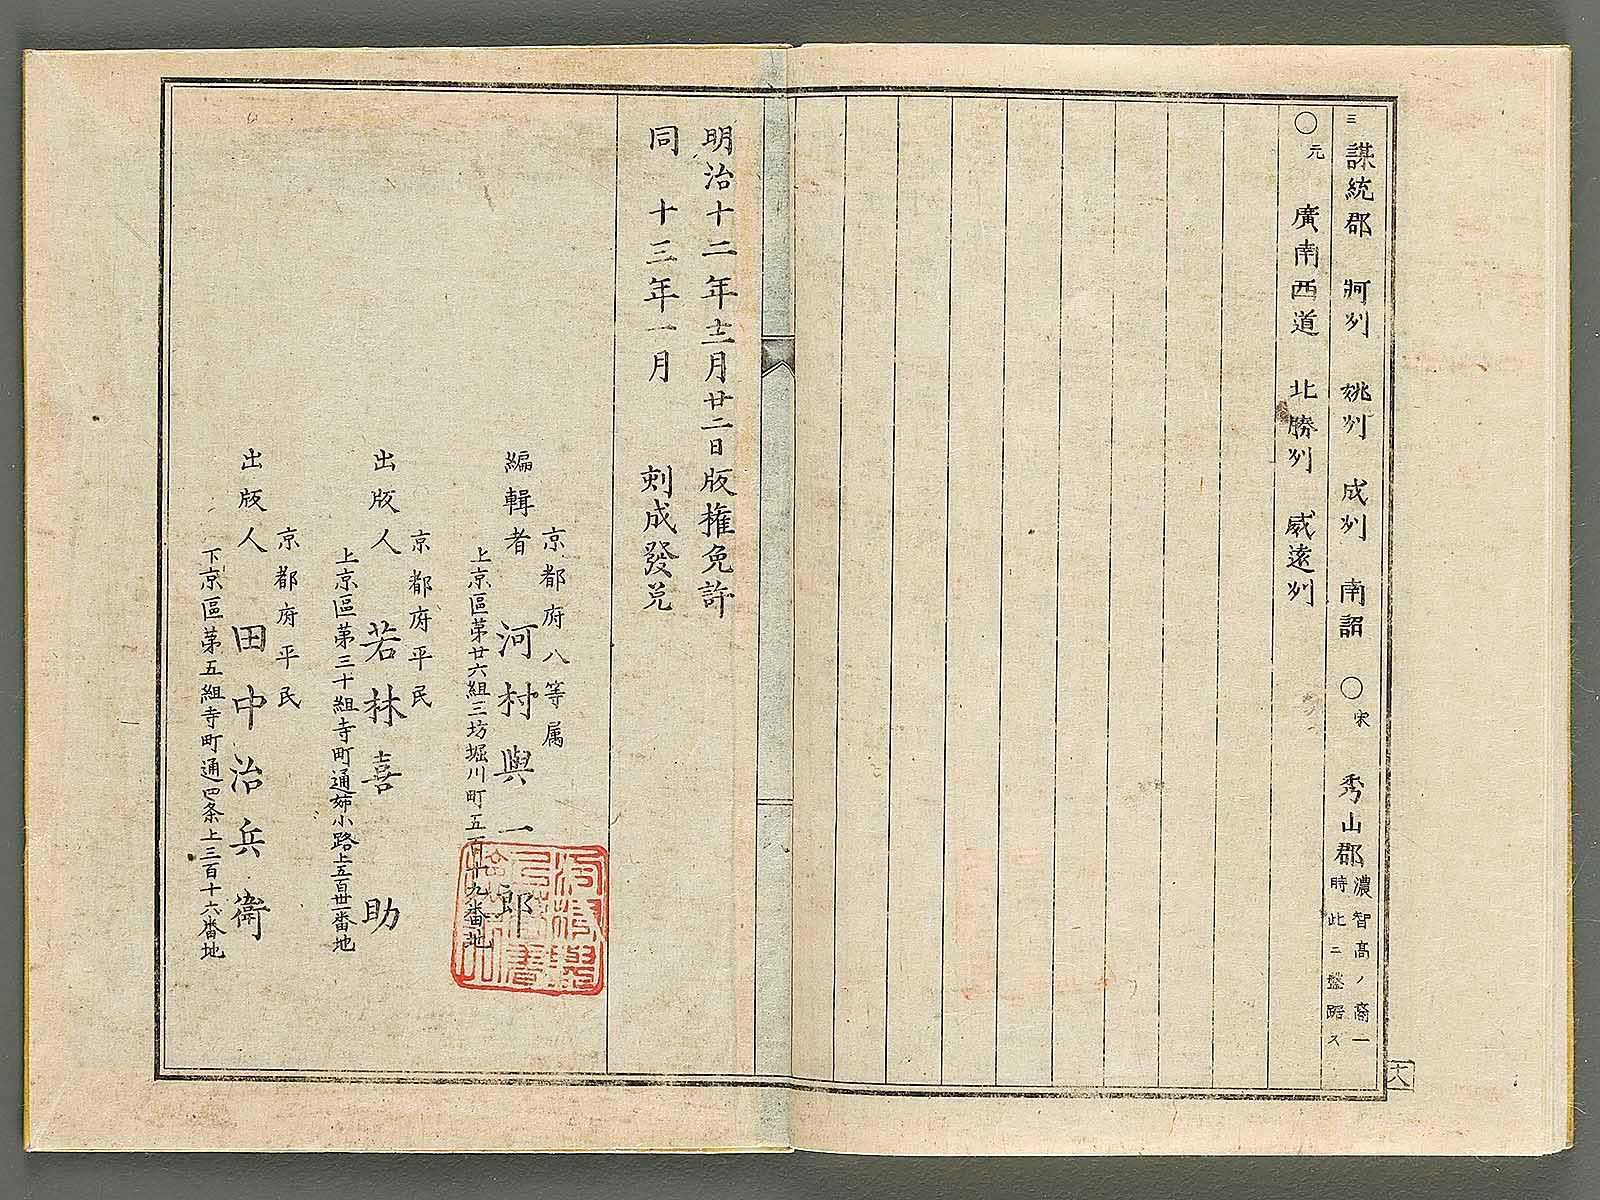 三 謀統郡 牁州 姚州 成州 南詔 ○宋 秀山郡 濃智高ノ裔一時此ニ盤踞ス
○元 廣南西道 北勝州 威遠州
十八
明治十二年十二月廿二日版権免許
同 十三年一月 刻成發兌
京都府八等属
編輯者 河村與一郎
上京區第廿六組三坊堀川町五百十九番地
京都府平民
出版人 若林喜助
上京區第三十組寺町通姉小路上五百卅一番地
京都府平民
出版人 田中治兵衛
下京區第五組寺町通四条上三百十六番地